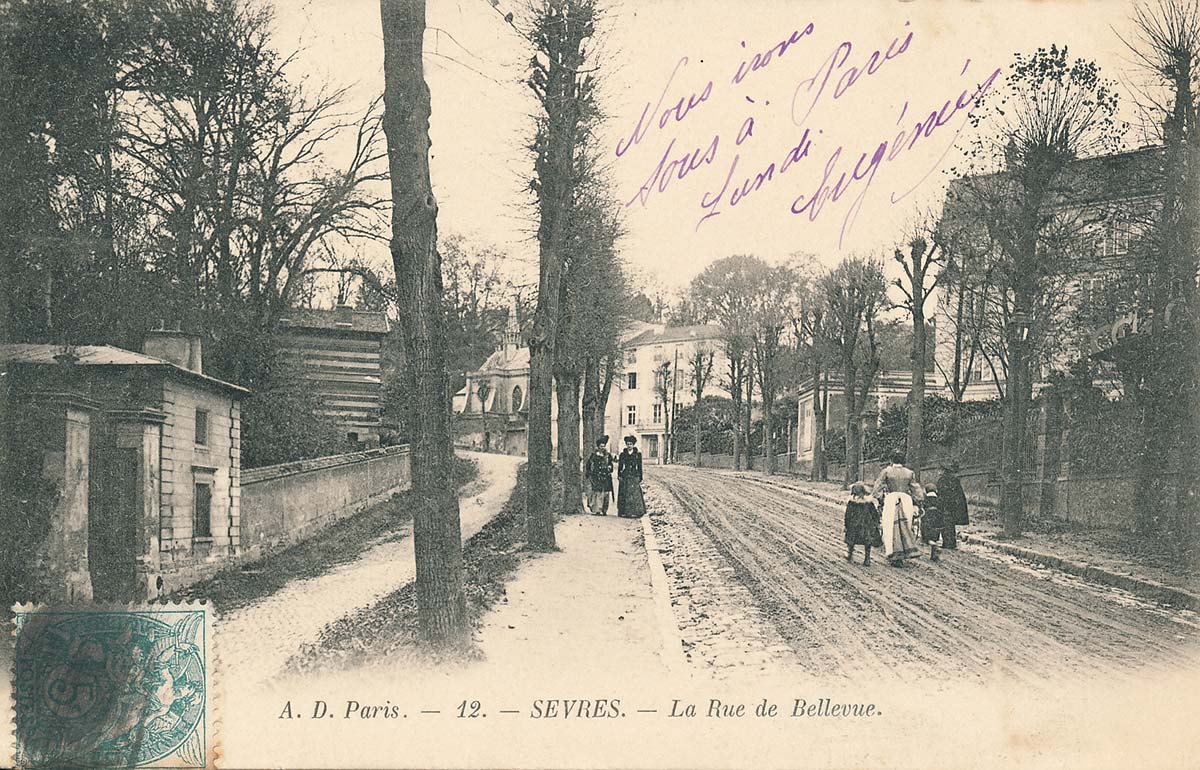 Nous irons
tous à Paris
Lundi Eugénie
A. D. Paris. — 12. — SEVRES. — La Rue de Bellevue.
5